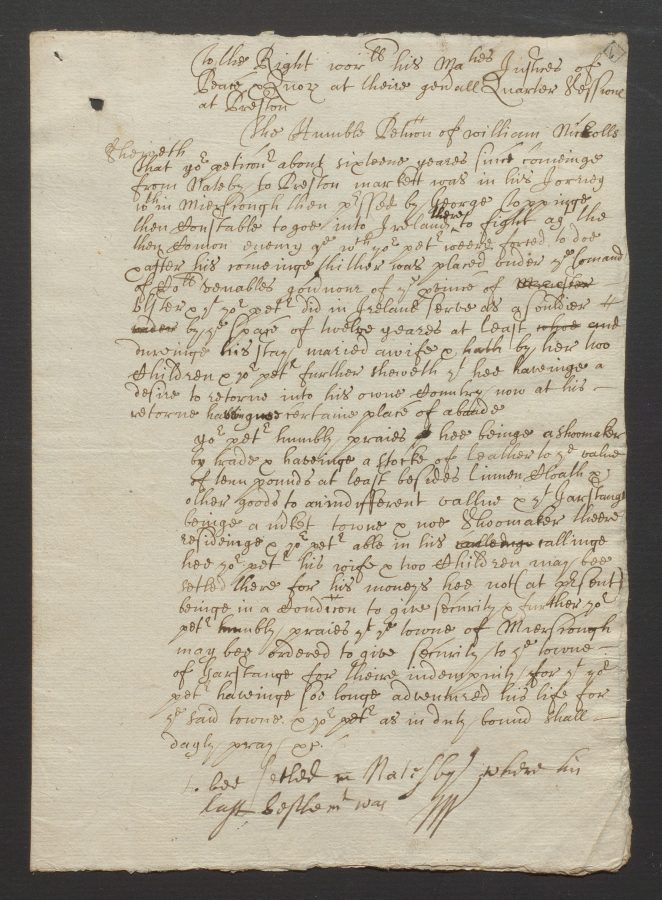 To the Right worll his Maties Justices of
Peace & Quor at theire genall Quarter Sessions
at Preston
The Humble Petion of william Nickolls
Sheweth
that yor petionr about sixteene yeares since comeinge
from Nateby to Preston markett was in his Jorney
wthin Mierscough then prssed by George Toppinge
then Constable to goe into Ireland there to fight agt the
then Comon enemy ye wch yor petr weere forced to doe
& after his comeinge thither was placed under ye comand
of Colll venables govnour of ye prince of
ulster & yt yor petr did in Ireland serve as a souldier
under by ye space of twelve yeares at least and
dureinge his stay maried a wife & hath by her two
Children & yor petr further sheweth yt hee haveinge a
desire to retorne into his owne Country now at his
retorne certaine place of aboade
yor petr humbly praies hee beinge a shoomaker
by trade & haveinge a stocke of leather to ye value
of tenn pounds at least besides linnen Cloath &
other goods to an indifferent vallue & yt Garstange
beinge a mket towne & noe Shoomaker theere
resideinge & yor petr able in his callinge
hee yor petr his wife & two Children may bee
setled there for his moneys hee not (at prsent)
beinge in a Condicon to give security & further yor
petr humbly praies yt ye towne of Mierscough
may bee ordered to give security to ye towne
of Garstange for theire indempnity for yt yor
petr haveinge soe longe adventured his life for
ye said towne & yor petr as in duty bound shall
dayly pray &c.
to bee setled in Nateby where his
last setlemt was